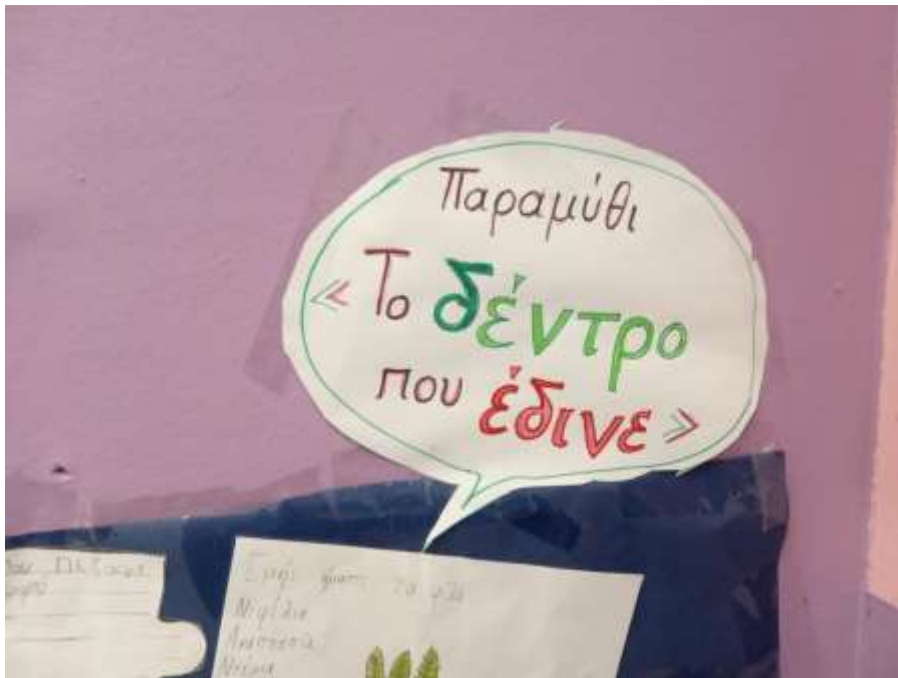 Παραμύθι
«Το δέντρο
που έδινε»
Εμείς
τα
Νεφέλη
Αναστασία